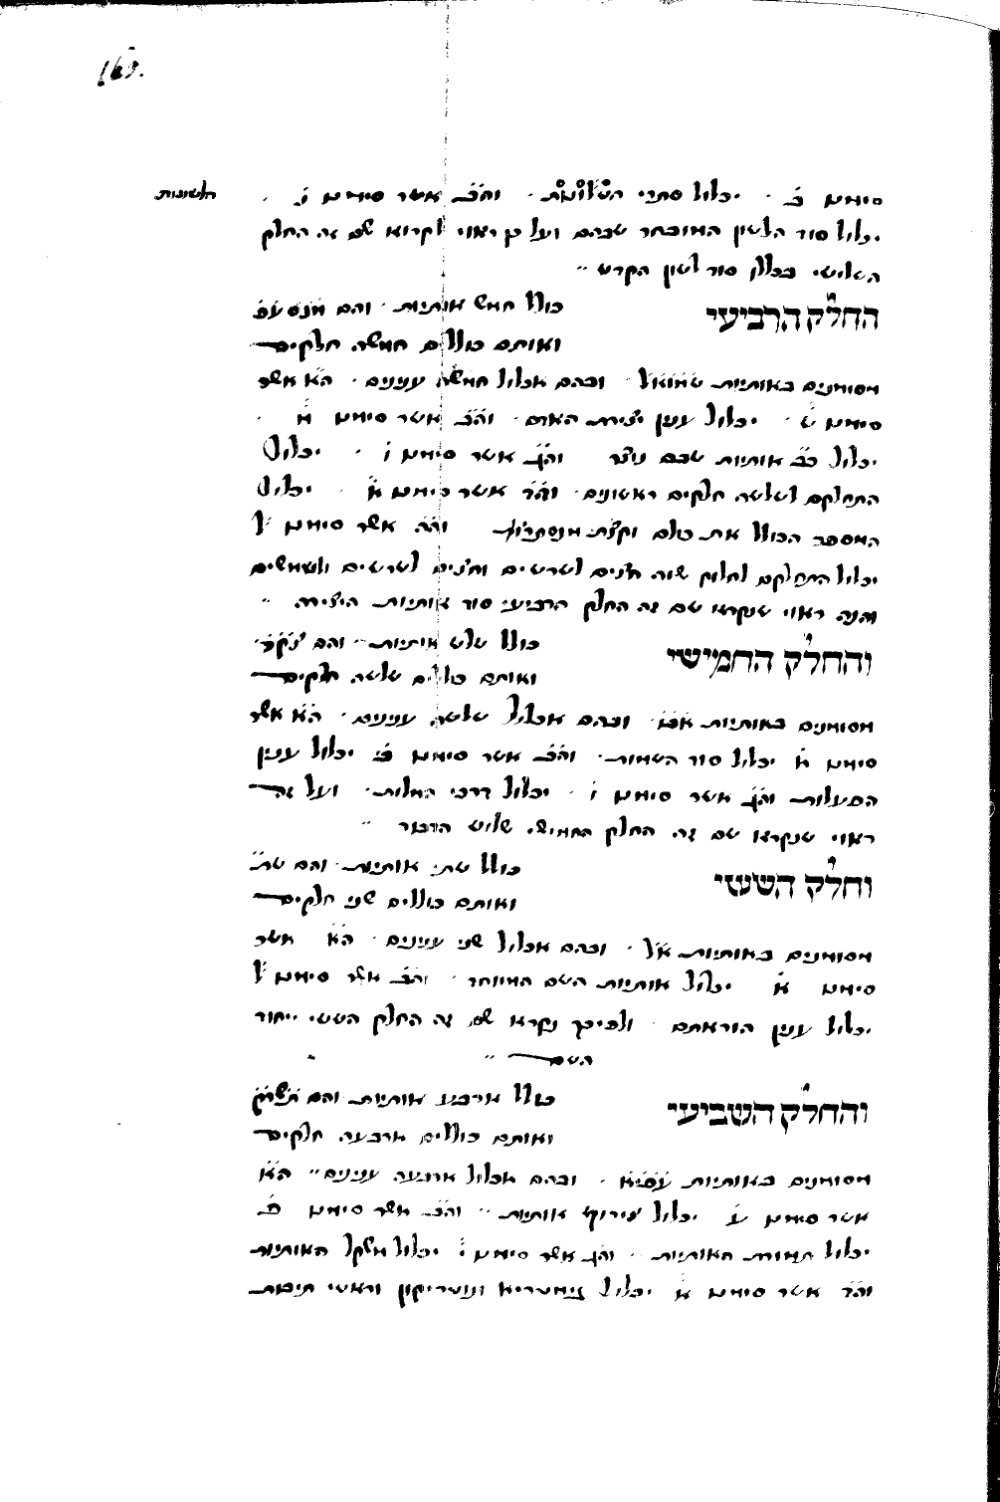 169.
הלשונות
סימנם ב׳ · יכלול סתרי הלשונות · והב׳ אשר סימנם ו׳ ·
יכלול סוד הלשון המובחר שבהם ועל כן ראוי לקרוא שם זה החלק
השלישי בכללו סוד לשון הקדש ״
החלק הרביעי כולל חמש אותיות · והם מנסעפ
ואותם כוללים חמשה חלקים
מסומנים באותיות שמואל · ובהם אכלול חמשה ענינים · הא׳ אשר
סימנם ש׳ · יכלול ענין יצירת האדם · והב׳ אשר סימנם מ׳ ·
יכלול כ״ב אותיות שבם נוצר והג׳ אשר סימנם ו׳ · יכלול
התחלקם לשלשה חלקים ראשונים · והד׳ אשר סימנם א׳ · יכלול
המספר הכולל את כולם וקצת מנסתריו · והה׳ אשר סימנם ל׳
יכלול התחלקם לחלוק שוה חצים לשרשים וחצים לשרשים ולשמשים
והנה ראוי שנקרא שם זה החלק הרביעי סוד אותיות היצירה ״
והחלק החמישי כולל שלש אותיות ·· והם צקר ·
ואותם כוללים שלשה חלקים
מסומנים באותיות אבו · ובהם אכלול שלשה ענינים · הא׳ אשר
סימנם א׳ יכלול סוד השמות · והב׳ אשר סימנם ב׳ יכלול ענין
הפעלות והג׳ אשר סימנם ו׳ · יכלול דרכי המלות · ועל זה
ראוי שנקרא שם זה החלק החמישי שלוש הדבור ״
וחלק הששי כולל שתי אותיות · והם שת
ואותם כוללים שני חלקים
מסומנים באותיות אל · ובהם אכלול שני ענינים · הא׳ אשר
סימנם א׳ יכלול אותיות השם המיוחד · והב׳ אשר סימנם ל׳
יכלול ענין הוראתם · ולפיכך נקרא שם זה החלק הששי ייחוד
השם ״
והחלק השביעי כולל ארבע אותיות והם
ואותם כוללים ארבעה חלקים
מסומנים באותיות · ובהם אכלול ארבעה ענינים ״ הא׳
אשר סימנם ע׳ יכלול צירוף אותיות ·· והב׳ אשר סימנם פ׳
יכלול תמורת האותיות ·· והג׳ אשר סימנם י׳ יכלול משקל האותיות
והד׳ אשר סימנם א׳ יכלול גימטריא ונוטריקון וראשי תיבות